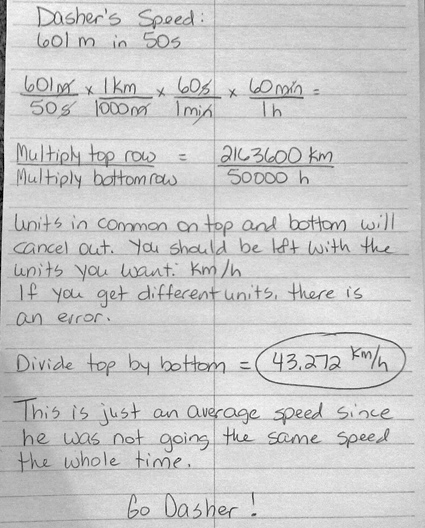 Dasher's Speed:
601 m in 50s
601m/50s × 1km/1000m × 60s/1min × 60min/1h =
Multiply top row / Multiply bottom row = 2163600 km / 50000 h
Units in common on top and bottom will
cancel out. You should be left with the
units you want: km/h
If you get different units, there is
an error.
Divide top by bottom = 43.272 km/h
This is just an average speed since
he was not going the same speed
the whole time.
Go Dasher!